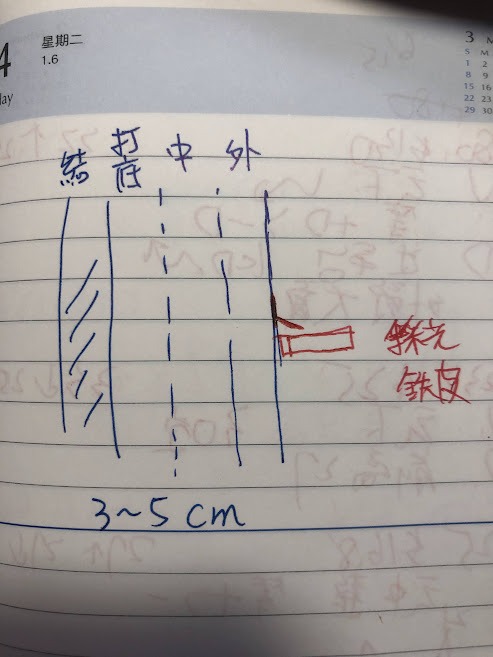 4
星期二
1.6
day
3 M
S M
1 2
8 9
15 16
22 23
29 30
結 打底 中 外
踩完
鉄皮
3~5 cm